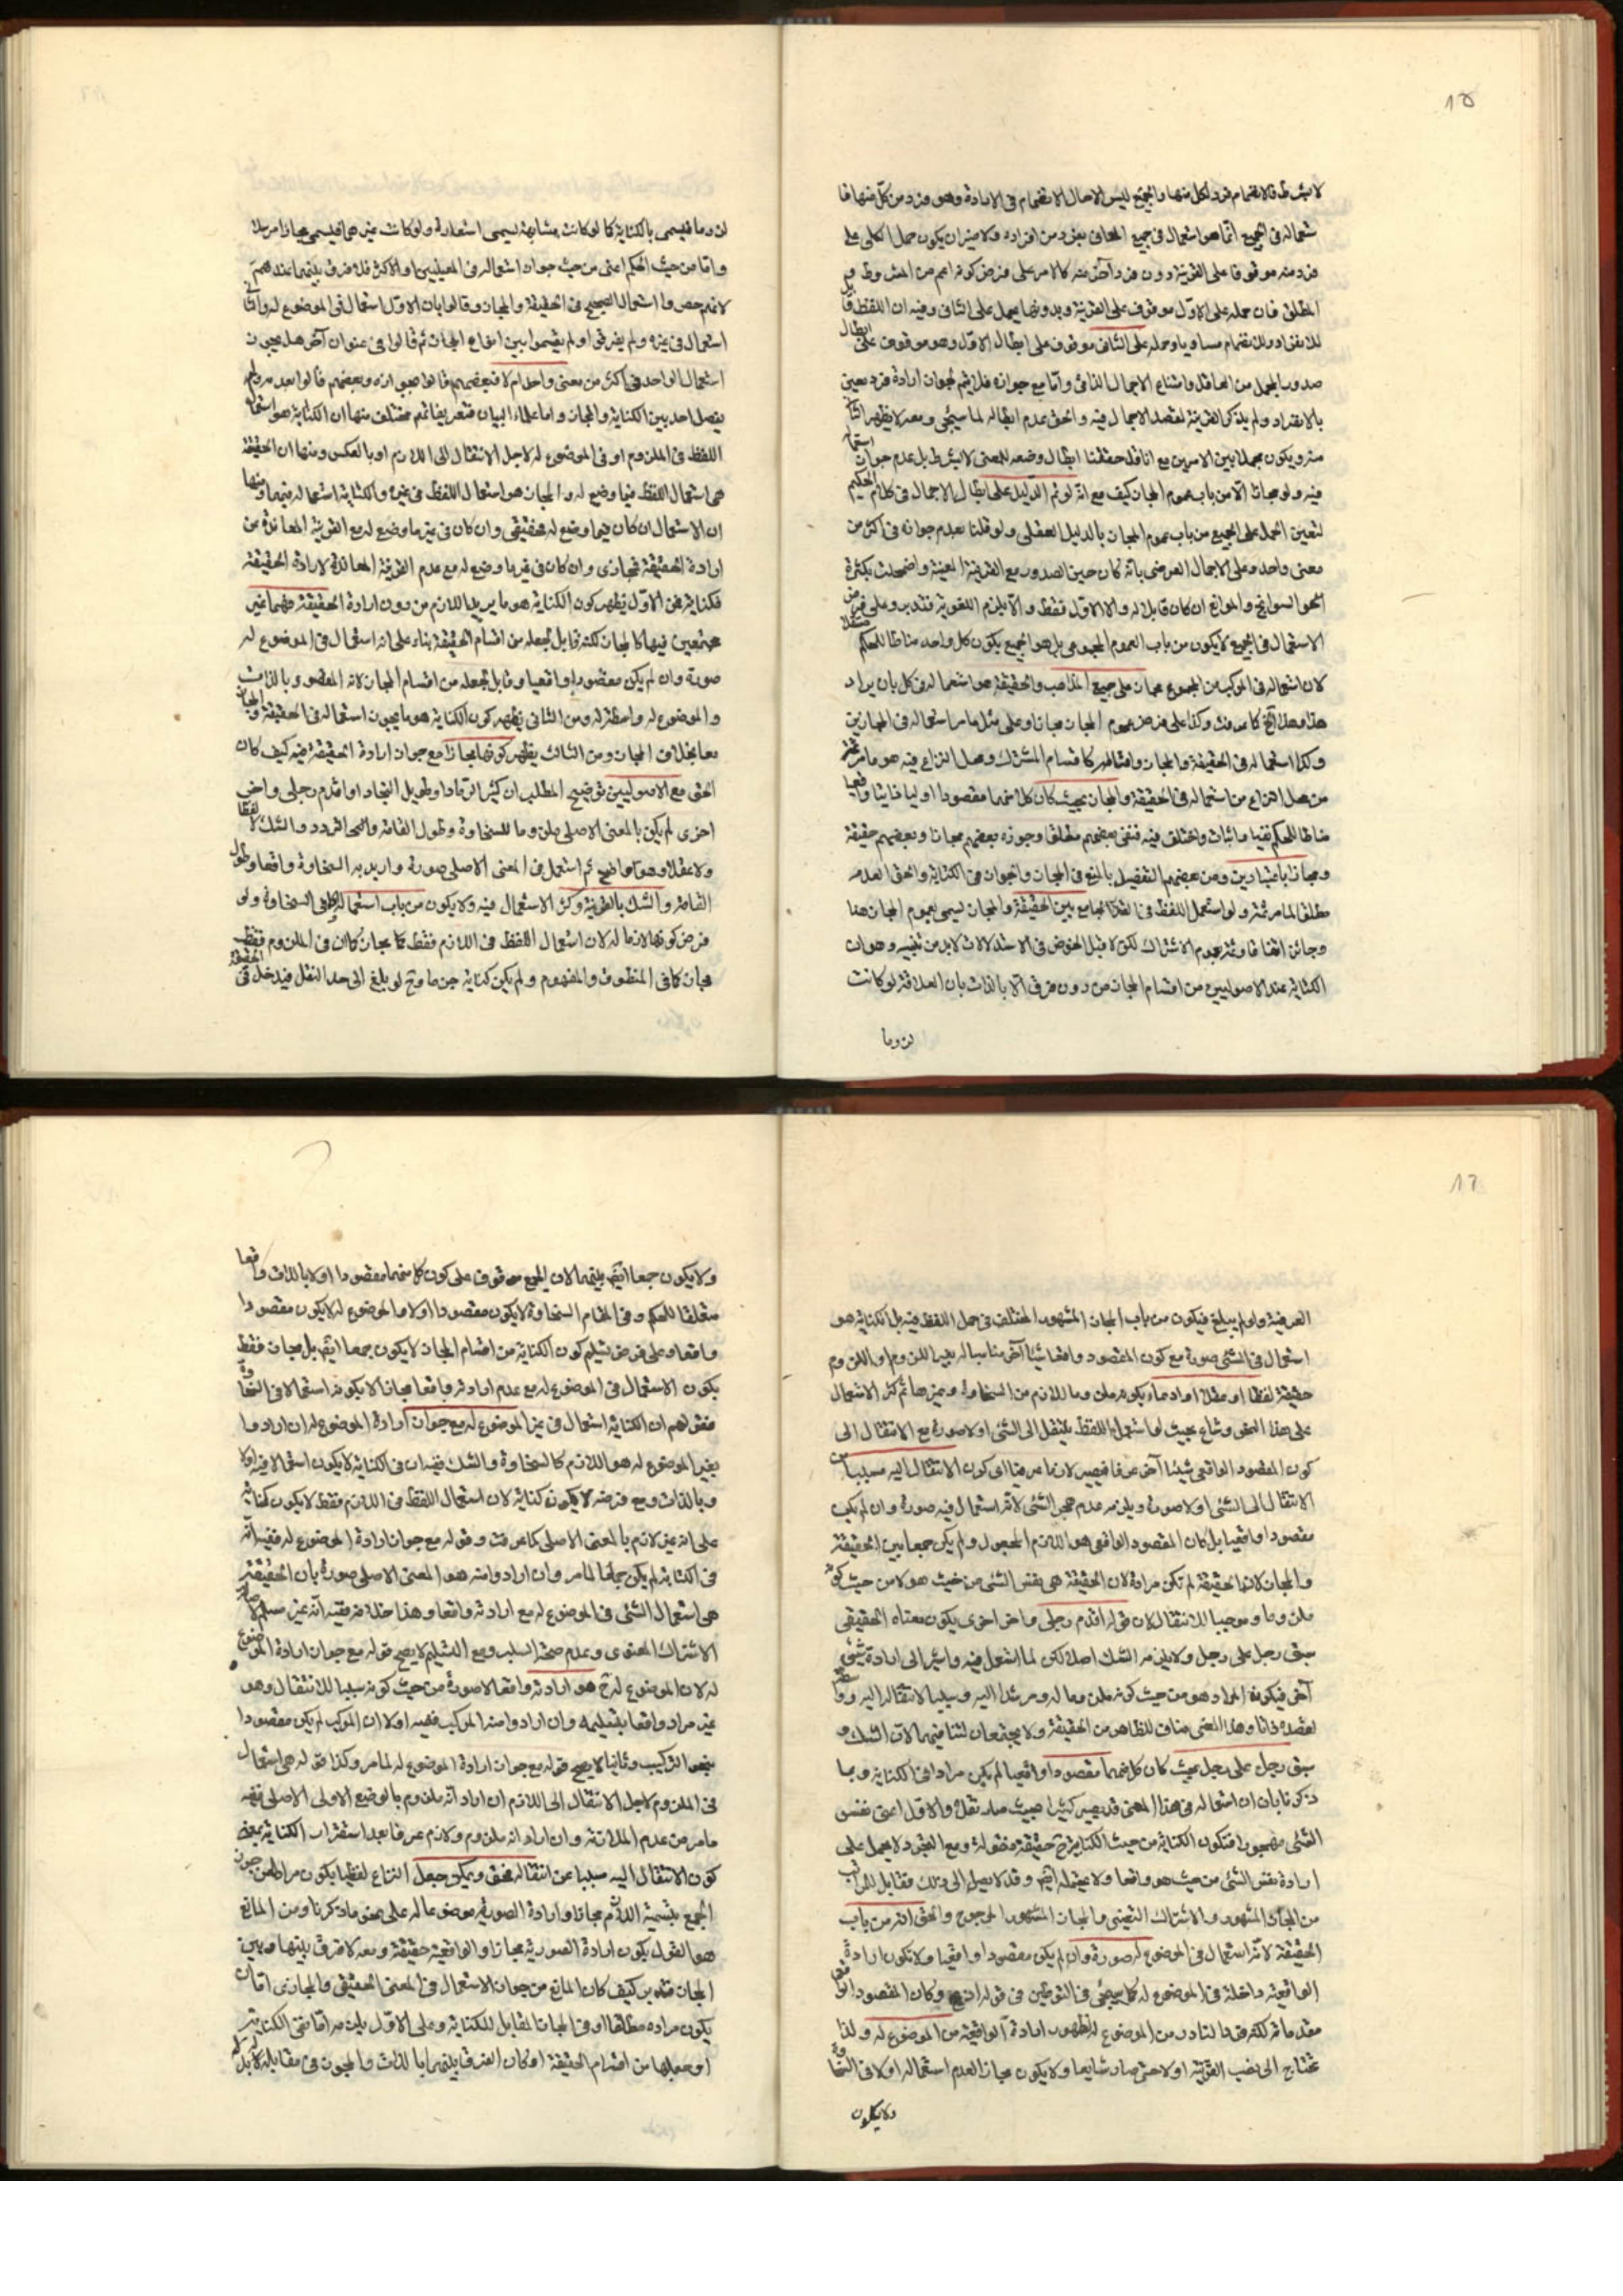 ١٥
لا بشرط فالانضمام فرد لكل منها والجميع ليس الا حال الانضمام فى الارادة وهو فرد من كلّ منها فا
ستعماله فى الجميع انّما هو استعمال فى جميع المعانى بفرد من افراده ولا ضير ان يكون حمل الكلى على
فرد منه موقوفا على القرينة دون فرد آخر منه كالامر على فرض كونه اعم من المشروط و
المطلق فان حمله على الاوّل موقوف على القرينة وبدونها يحمل على الثانى وفيه ان اللفظ قا
للانفراد وللانضمام مساويا وحمله على الثانى موقوف على ابطال الاوّل وهو موقوف على ابطال
صدور المجمل من العاقل وامتناع الاجمال الذاتى وامّا مع جوازه فلا يتم لجواز ارادة فرد معين
بالانفراد ولم يذكر القرينة لقصد الاجمال فيه والحق عدم ابطاله لما سيجئ ومعه لا يظهر
منه ويكون مجملا بين الامرين مع انا قد حققنا ابطال وضعه للمعنى لا بشرط بل عدم جواز استعما
فيه ولو مجازا الّا من باب عموم المجاز كيف مع انّه لو تم الدليل على ابطال الاجمال فى كلام الحكيم
لتعين الحمل على الجميع من باب عموم المجاز بالدليل العقلى ولو قلنا بعدم جوازه فى اكثر من
معنى واحد وعلى الاجمال العرضى بانّه كان حين الصدور مع القرينة المعينة واضمحلت بكثرة
السوانح والموانع ان كان قابلا له والا الاوّل فقط والّا يلزم اللغوية فتدبر وعلى فرض
الاستعمال فى الجميع لا يكون من باب العموم المجموعى بل هو الجميع بكون كل واحد مناطا للحكم مستقلا
لان استعماله فى المركب من المجموع مجاز على جميع المذاهب والحقيقة هو استعماله فى كل بان يراد
هذا وهذا الخ كما عرفت وكذا على فرض عموم المجاز مجازا وعلى مثل ما مر استعماله فى المجازين
وكذا استعماله فى الحقيقة والمجاز واقسامه كاقسام المشترك ومحل النزاع فيه هو ما مر ثمّة
من محل النزاع من استعماله فى الحقيقة والمجاز بحيث كان كلا منهما مقصودا اوليا ذاتيا واقعيا
مناطا للحكم نفيا واثباتا واختلف فيه فنفى بعضهم مطلقا وجوزه بعضهم مجازا وبعضهم حقيقة
ومجازا باعتبارين ومن بعضهم التفصيل بالمنع فى المجاز والجواز فى الكناية والحق العدم
مطلقا لما مر ثمّة ولو استعمل اللفظ فى القدر الجامع بين الحقيقة والمجاز ليسمى بعموم المجاز هنا
وجائز اتفاقا وثمّة بعموم الاشتراك لكن لا قبل الخوض فى الاستدلالات لا بد من تنبيه وهو ان
الكناية عند الاصوليين من اقسام المجاز من دون فرق الّا بالذات بان العلاقة لو كانت
لزوما
لزوما فيسمى بالكناية كما لو كانت مشابهة يسمى استعارة ولو كانت غيرهما فيسمى مجازا مرسلا
وامّا من حيث الحكم اعنى من حيث جواز استعماله فى المعنيين او الاكثر فلا فرق بينهما عندهم
لانهم حصروا استعمال الصحيح فى الحقيقة والمجاز وقالوا بان الاوّل استعمال فى الموضوع له والثانى
استعمال فى غيره ولم يفرقوا ولم يقسموا بين انواع المجاز ثم قالوا فى عنوان آخر هل يجوز
استعمال الواحد فى اكثر من معنى واحد ام لا فبعضهم قالوا بجوازه وبعضهم قالوا بعدمه ولم
يفصل احد بين الكناية والمجاز واما علماء البيان فتعريفاتهم مختلف منها ان الكناية هو استعمال
اللفظ فى الملزوم او فى الموضوع له لاجل الانتقال الى اللازم او بالعكس ومنها ان الحقيقة
هى استعمال اللفظ فيما وضع له والمجاز هو استعمال اللفظ فى غيره والكناية استعماله فيهما ومنها
ان الاستعمال ان كان فيما وضع له فحقيقى وان كان فى غير ما وضع له مع القرينة المعاندة من
ارادة الحقيقة فمجازى وان كان فى غير ما وضع له مع عدم القرينة المعاندة لارادة الحقيقة
فكناية فمن الاوّل يظهر كون الكناية هو ما يريد اللازم من دون ارادة الحقيقة فهما غير
مجتمعين فيها كالمجاز لكنه قابل لجعله من اقسام الحقيقة بناء على انه استعمال فى الموضوع له
صورة وان لم يكن مقصودا واقعيا وقابل لجعله من اقسام المجاز لانه المقصود بالذات
والموضوع له واسطة له ومن الثانى يظهر كون الكناية هو ما يجوز استعماله فى الحقيقة والمجاز
معا بخلاف المجاز ومن الثالث يظهر كونها مجازا مع جواز ارادة الحقيقة فيه كيف كان
الحق مع الاصوليين توضيح المطلب ان كثير الرماد او طويل النجاد او اقدم رجلى واخر
اخرى لم يكن بالمعنى الاصلى ملزوما للسخاوة وطول القامة والتردد والشك لا لفظا
ولا عقلا وهو واضح ثم استعمل فى المعنى الاصلى صورة واريد به السخاوة واقعا وطول
القامة والشك بالقرينة وكثر الاستعمال فيه ولا يكون من باب استعماله فى السخاوة ولو
فرض كونها لازما له لان استعمال اللفظ فى اللازم فقط مجاز كما ان فى الملزوم فقط
مجاز كما فى المنطوق والمفهوم ولم يكن كناية جزما وح لو بلغ الى حد النقل فيدخل فى الحقيقة
١٦
العرفية ولو لم يبلغ فيكون من باب المجاز المشهور المختلف فى حمل اللفظ فيه بل الكناية هو
استعمال فى الشئ صورة مع كون المقصود واقعا شيئا آخر مناسبا له بغير اللزوم او اللزوم
حقيقة لفظا او عقلا او ادعاء بكونه ملزوما للازم من السخاوة وغيرها ثم كثر الاستعمال
على هذا النحو وشاع بحيث لو استعمل اللفظ ينتقل الى الشئ اولا صورة مع الانتقال الى
كون المقصود الواقعى شيئا آخر عرفا فيصير لازما عرفيا اى كون الانتقال اليه مسببا من
الانتقال الى الشئ اولا صورة ويلزمه عدم هجر الشئ لانّه استعمال فيه صورة وان لم يكن
مقصودا واقعيا بل كان المقصود الواقعى هو اللازم المجعول ولم يكن جمعا بين الحقيقة
والمجاز لان الحقيقة لم تكن مرادة لان الحقيقة هى نفس الشئ من حيث هو لا من حيث كونه
ملزوما وموجبا للانتقال لان قوله اقدم رجلى واخر اخرى يكون معناه الحقيقى
سبق رجل على رجل ولا يلزمه الشك اصلا لكن لما استعمل فيه واشير الى ارادة شئ
آخر فيكون المراد هو من حيث كونه ملزوما له ومرشدا اليه وسببا لانتقاله اليه و
لقصده ذاتا وهذا المعنى مناف للظاهر من الحقيقة ولا يجتمعان لتنافيهما لان الشك و
سبق رجل على رجل بحيث كان كلا منهما مقصودا واقعيا لم يكن مرادا فى الكناية وبما
ذكرنا بان ان استعماله فى هذا المعنى قد يصير كثيرا بحيث صار نقلا والاول اعنى نفس
الشئ مهجورا فتكون الكناية من حيث الكناية ح حقيقة منقولة ومع القيود لا يحمل على
ارادة نفس الشئ من حيث هو واقعا ولا يحتمله ايضا وقد لا يصل الى ذلك فقابل للمراتب
من المجاز المشهور والاشتراك التعينى والمجاز المشهور المرجوح والحق انه من باب
الحقيقة لانّه استعمال فى الموضوع له صورة وان لم يكن مقصودا واقعيا ولا تكون ارادة
الواقعية داخلة فى الموضوع له كما سيجئ فى التوطين فى قوله اذبح وكان المقصود الواقعى
مقدماته لكنه فى بادر من الموضوع له ظهور ارادة الواقعية من الموضوع له ولذا
تحتاج الى نصب القرينة اولا حتى صار شايعا ولا يكون مجازا لعدم استعماله اولا فى السخاوة
ولا يكون
ولا يكون جمعا ايضا بينهما لان الجمع موقوف على كون كل منهما مقصودا اولا بالذات واقعا
متعلقا للحكم وفى المقام السخاوة لا يكون مقصودا اولا والموضوع له لا يكون مقصودا
واقعا وعلى فرض تسليم كون الكناية من اقسام المجاز لا يكون جمعا ايضا بل مجاز فقط
بكون الاستعمال فى الموضوع له مع عدم ارادته واقعا مجازا لا بكونه استعمالا فى السخاوة
فقولهم ان الكناية استعمال فى غير الموضوع له مع جواز ارادة الموضوع له ان ارادوا
بغير الموضوع له هو اللازم كالسخاوة والشك ففيه ان فى الكناية لا يكون استعمالا فيه اولا
وبالذات ومع فرضه لا يكون كناية لان استعمال اللفظ فى اللازم فقط لا يكون كناية
على انه غير لازم بالمعنى الاصلى كما عرفت وقوله مع جواز ارادة الموضوع له ففيه انّه
فى الكناية لم يكن جائزا لما مر وان ارادوا منه هو المعنى الاصلى صورة بان الحقيقة
هى استعمال الشئ فى الموضوع له مع ارادته واقعا وهذا خلافه ففيه انّه غير مسلم لاصالة
الاشتراك المعنوى وعدم صحة السلب ومع التسليم لا يصح قوله مع جواز ارادة الموضوع
له لان الموضوع له ح هو ارادته واقعا لا صورة من حيث كونه سببا للانتقال وهو
غير مراد واقعا بتسليمه وان ارادوا منه المركب ففيه اولا ان المركب لم يكن مقصودا
بنحو التركيب وثانيا لا يصح قوله مع جواز ارادة الموضوع له لما مر وكذا قوله هى استعمال
فى الملزوم لاجل الانتقال الى اللازم ان اراد انّه ملزوم بالوضع الاولى الاصلى ففيه
ما مر من عدم الملازمة وان اراد انه ملزوم ولازم عرفا بعد استقرار الكناية بمعنى
كون الانتقال اليه مسببا عن انتقاله فحق ويمكن جعل النزاع لفظيا بكون مراد من جوز
الجمع بتسمية اللازم مجازا وارادة الصورية موضوعا له على نحو ما ذكرنا ومن المانع
هو القول بكون ارادة الصورية مجازا والواقعية حقيقة ومعه لا فرق بينها وبين
المجاز فتدبر كيف كان المانع من جواز الاستعمال فى المعنى الحقيقى والمجازى امّا ان
يكون مراده مطلقا او فى المجاز المقابل للكناية وعلى الاوّل يلزمه امّا نفى الكناية
او جعلها من اقسام الحقيقة او كان الفرق بينهما بالذات والمجوز فى مقابله لا بد له